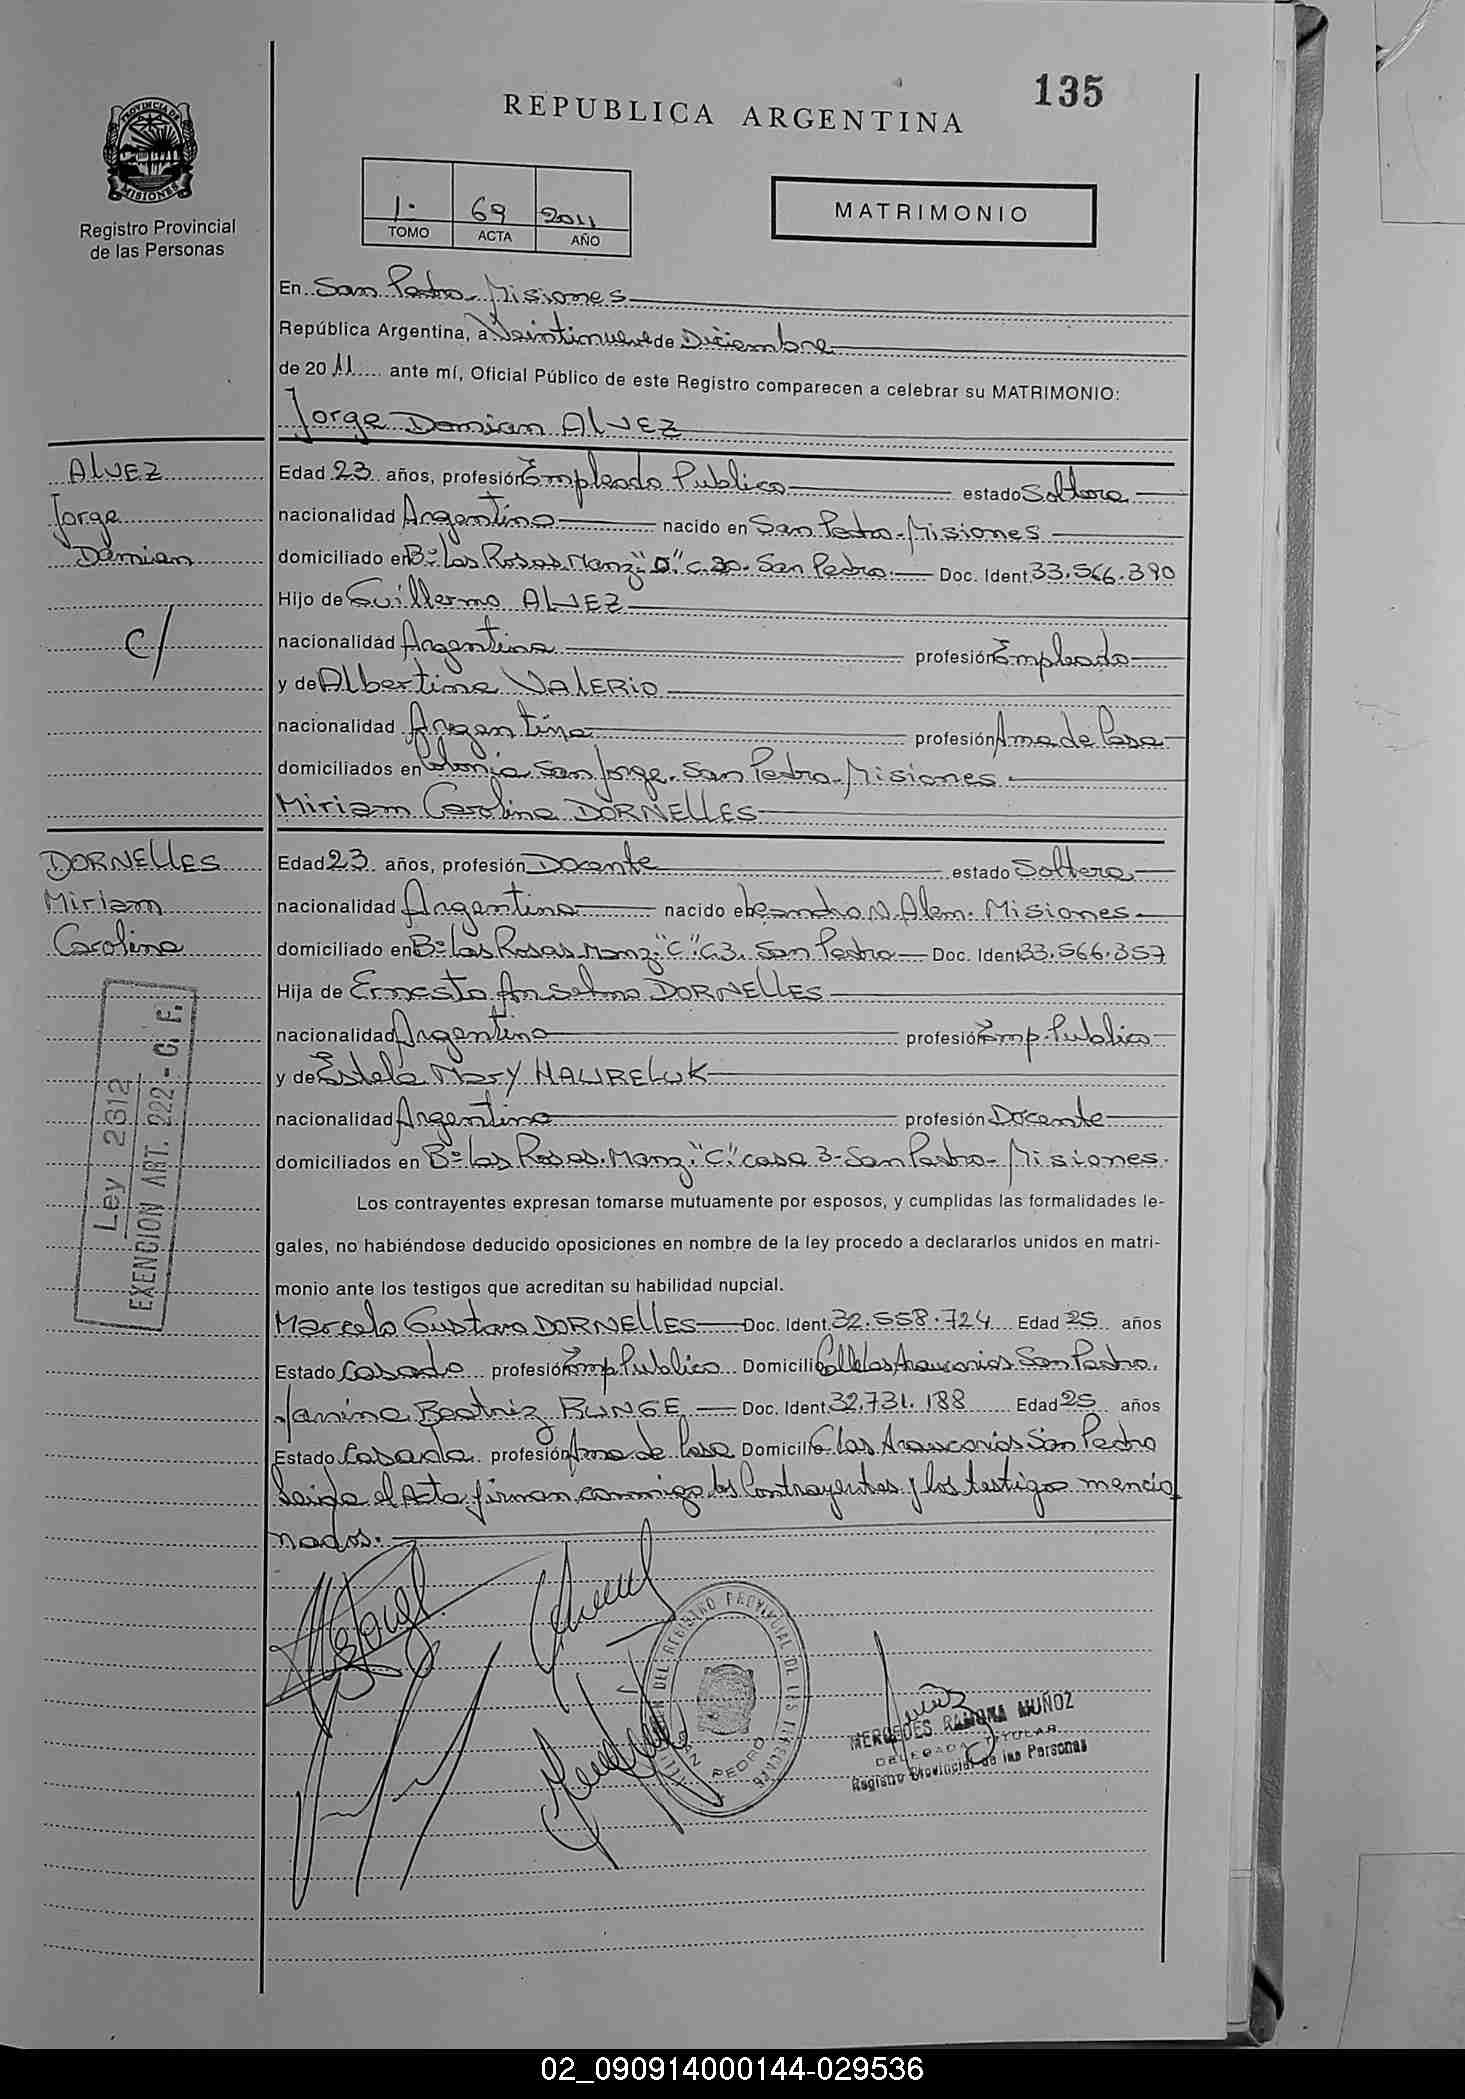 135
REPUBLICA ARGENTINA
PROVINCIA DE
MISIONES
Registro Provincial
de las Personas
1. 69 2011
TOMO ACTA AÑO
MATRIMONIO
En San Pedro - Misiones
República Argentina, a Veintinueve de Diciembre
de 2011 ante mí, Oficial Público de este Registro comparecen a celebrar su MATRIMONIO:
Jorge Damian ALVEZ
ALVEZ
Jorge
Damian
c/
Edad 23 años, profesión Empleado Publico estado Soltero
nacionalidad Argentino nacido en San Pedro - Misiones
domiciliado en Bº Las Rosas Manz. "D" c. 20. San Pedro. Doc. Ident. 33.566.390
Hijo de Guillermo ALVEZ
nacionalidad Argentina profesión Empleado
y de Albertina VALERIO
nacionalidad Argentina profesión Ama de Casa
domiciliados en Colonia San Jorge. San Pedro - Misiones
Miriam Carolina DORNELLES
DORNELLES
Miriam
Carolina
Edad 23 años, profesión Docente estado Soltera
nacionalidad Argentina nacido en Leandro N. Alem. Misiones
domiciliado en Bº Las Rosas Manz. "C" C3. San Pedro Doc. Ident. 33.566.357
Hija de Ernesto Anselmo DORNELLES
nacionalidad Argentino profesión Emp. Publico
y de Estela Mary HAURELUK
nacionalidad Argentina profesión Docente
domiciliados en Bº Las Rosas. Manz. "C" casa 3 - San Pedro - Misiones.
Ley 2312
EXENCION ART. 222 - C. F.
Los contrayentes expresan tomarse mutuamente por esposos, y cumplidas las formalidades le-
gales, no habiéndose deducido oposiciones en nombre de la ley procedo a declararlos unidos en matri-
monio ante los testigos que acreditan su habilidad nupcial.
Marcelo Gustavo DORNELLES Doc. Ident. 32.558.724 Edad 25 años
Estado Casado profesión Emp Publico Domicilio Calle las Araucarias San Pedro.
Janina Beatriz BUNGE Doc. Ident. 32.731.188 Edad 25 años
Estado Casada profesión Ama de Casa Domicilio C. las Araucarias San Pedro
Leida el Acta firman conmigo los Contrayentes y los testigos mencio
nados.
DEL REGISTRO PROVINCIAL DE LAS PERSONAS
SAN PEDRO
MERCEDES RAMONA MUÑOZ
DELEGADA TITULAR
Registro Provincial de las Personas
02_090914000144-029536